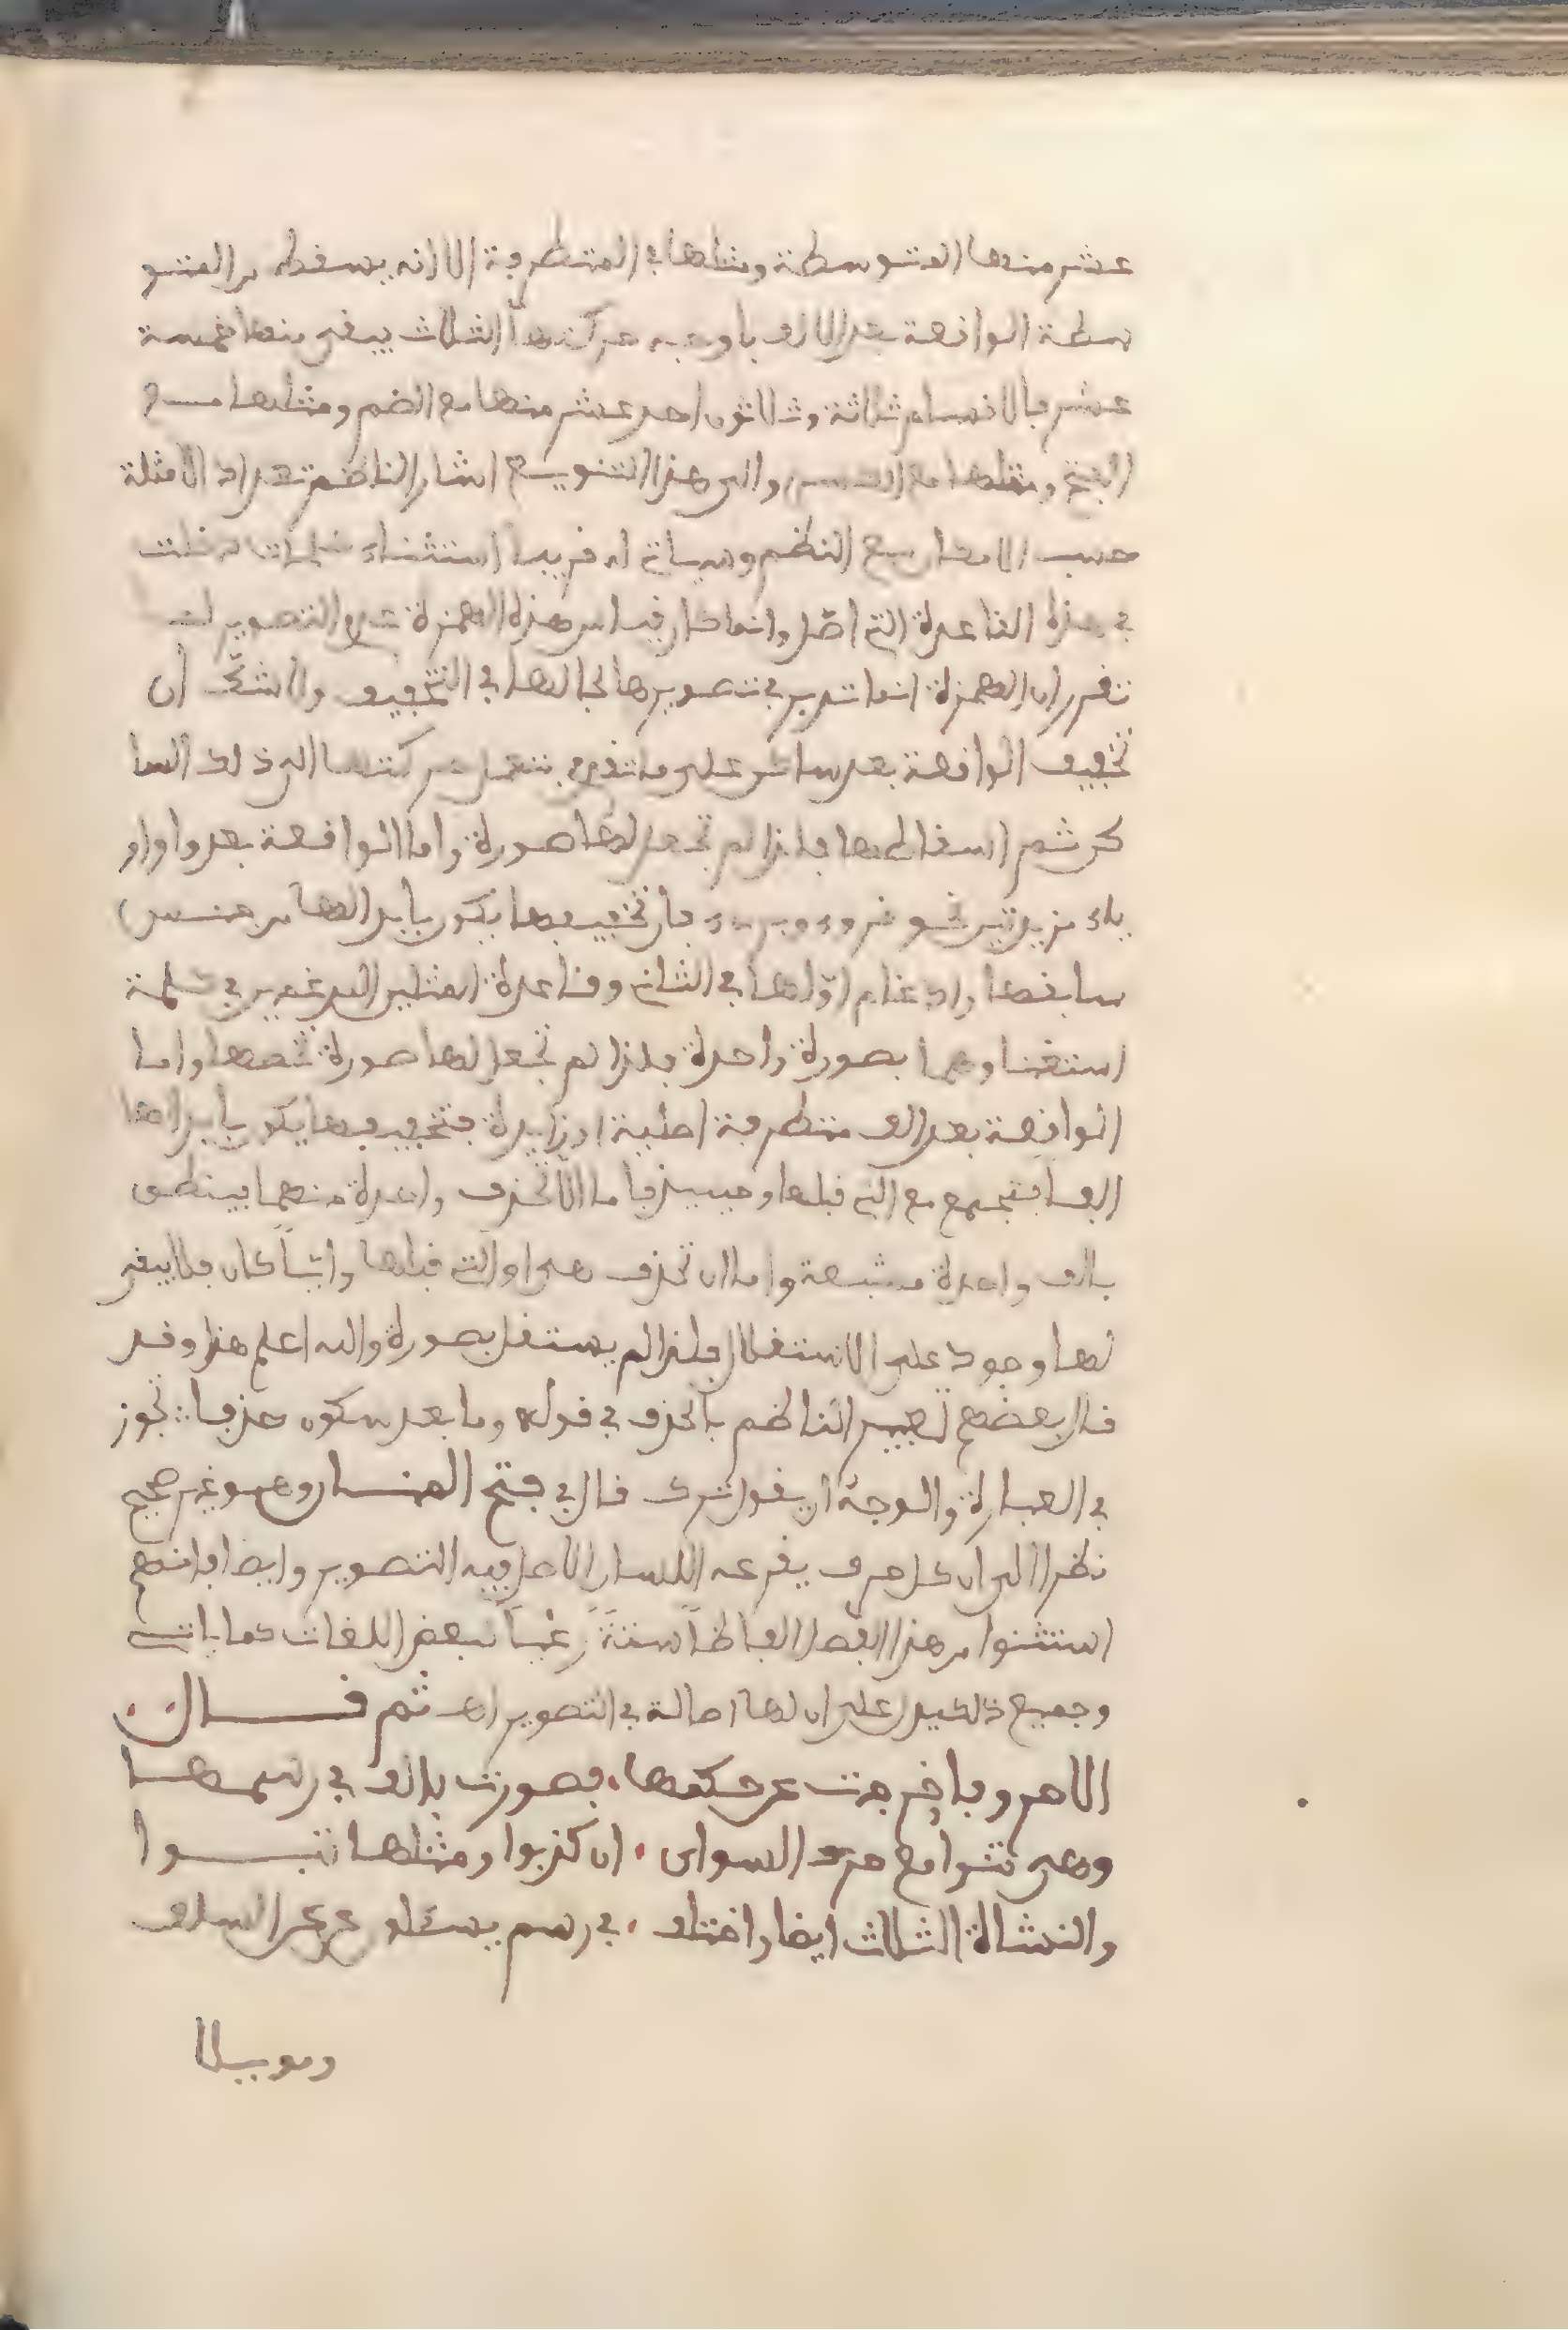 عشر منها المتوسطة ومثلها في المتطرفة الا انه يسقط من المتو
سطة الواقعة بعد الالف باوجه حركتها الثلاث يبقى منها خمسة
عشر فالاقسام ثلاثة وثلاثون احد عشر منها مع الضم ومثلها مع
الفتح ومثلها مع الكسر والى هذا التنويع اشار الناظم بتعداد الامثلة
حسب الامكان مع النظم وسياتي له قريبا استثناء كلمات دخلت
في هذه القاعدة التي اصّل وانما كان قياس هذه الهمزة عدم التصوير لما
تقرر ان الهمزة انما تدبر في تصويرها لحالها في التخفيف ولا شكّ أن
تخفيف الواقعة بعد ساكن على ما تقدم بنقل حركتها الى ذلك السا
كن ثم اسقاطها فلذا لم تجعل لها صورة واما الواقعة بعد واو او
ياء مزيدتين نحو قروء وبريء فان تخفيفها يكون بابدالها من جنس
سابقها وادغام اوّلها في الثاني وقاعدة المثلين المدغمين في كلمة
استغناوهما بصورة واحدة فلذا لم تجعل لها صورة تخصها واما
الواقعة بعد الف متطرفة اصلية او زايدة فتخفيفها يكون بابدالها
الفا فتجتمع مع التي قبلها وحينيذ فاما الا تحذف واحدة منهما فينطق
بالف واحدة مشبعة واما ان تحذف هي او التي قبلها وايّاً كان فلا يبقى
لها وجود على الاستقلال فلذا لم يستقل بصورة والله اعلم هذا وقد
قال بعضهم تعبير الناظم بالحذف في قوله وما بعد سكون حذفا تجوز
في العبارة والوجه ان يقول ترك قال في فتح المنان وهو غير صحيح
نظرا الى ان كل حرف يقرعه اللسان الاصل فيه التصوير وايضا فانهم
استثنوا من هذا الفصل الفاظاً ستةً رعياً لبعض اللغات كما ياتي
وجميع ذلك يدل على ان لها اصالة في التصوير اهـ ثم قال
الا حروفا خرجت عن حكمها فصورت بالف في رسمها
وهي تنوا مع حرف السواى ان كذبوا ومثلها تبوا
والنشاة الثلاث ايضا واختلف في رسم يسئلو عن السلف
وموييلا